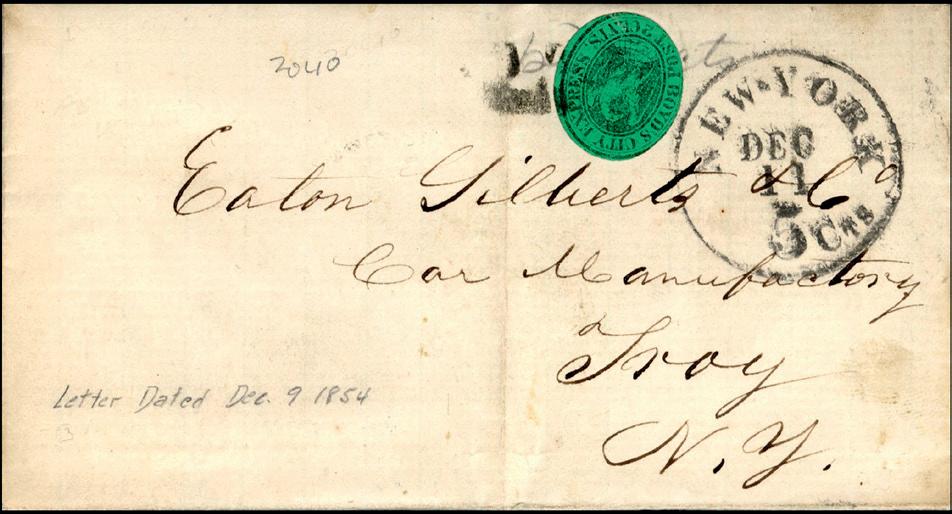 2040
BOYD'S CITY EXPRESS POST 2 CENTS
NEW-YORK
DEC
11
5 Cts
Eaton Gilberts & Co
Car Manufactory
Troy
N. Y.
Letter Dated Dec. 9 1854
3